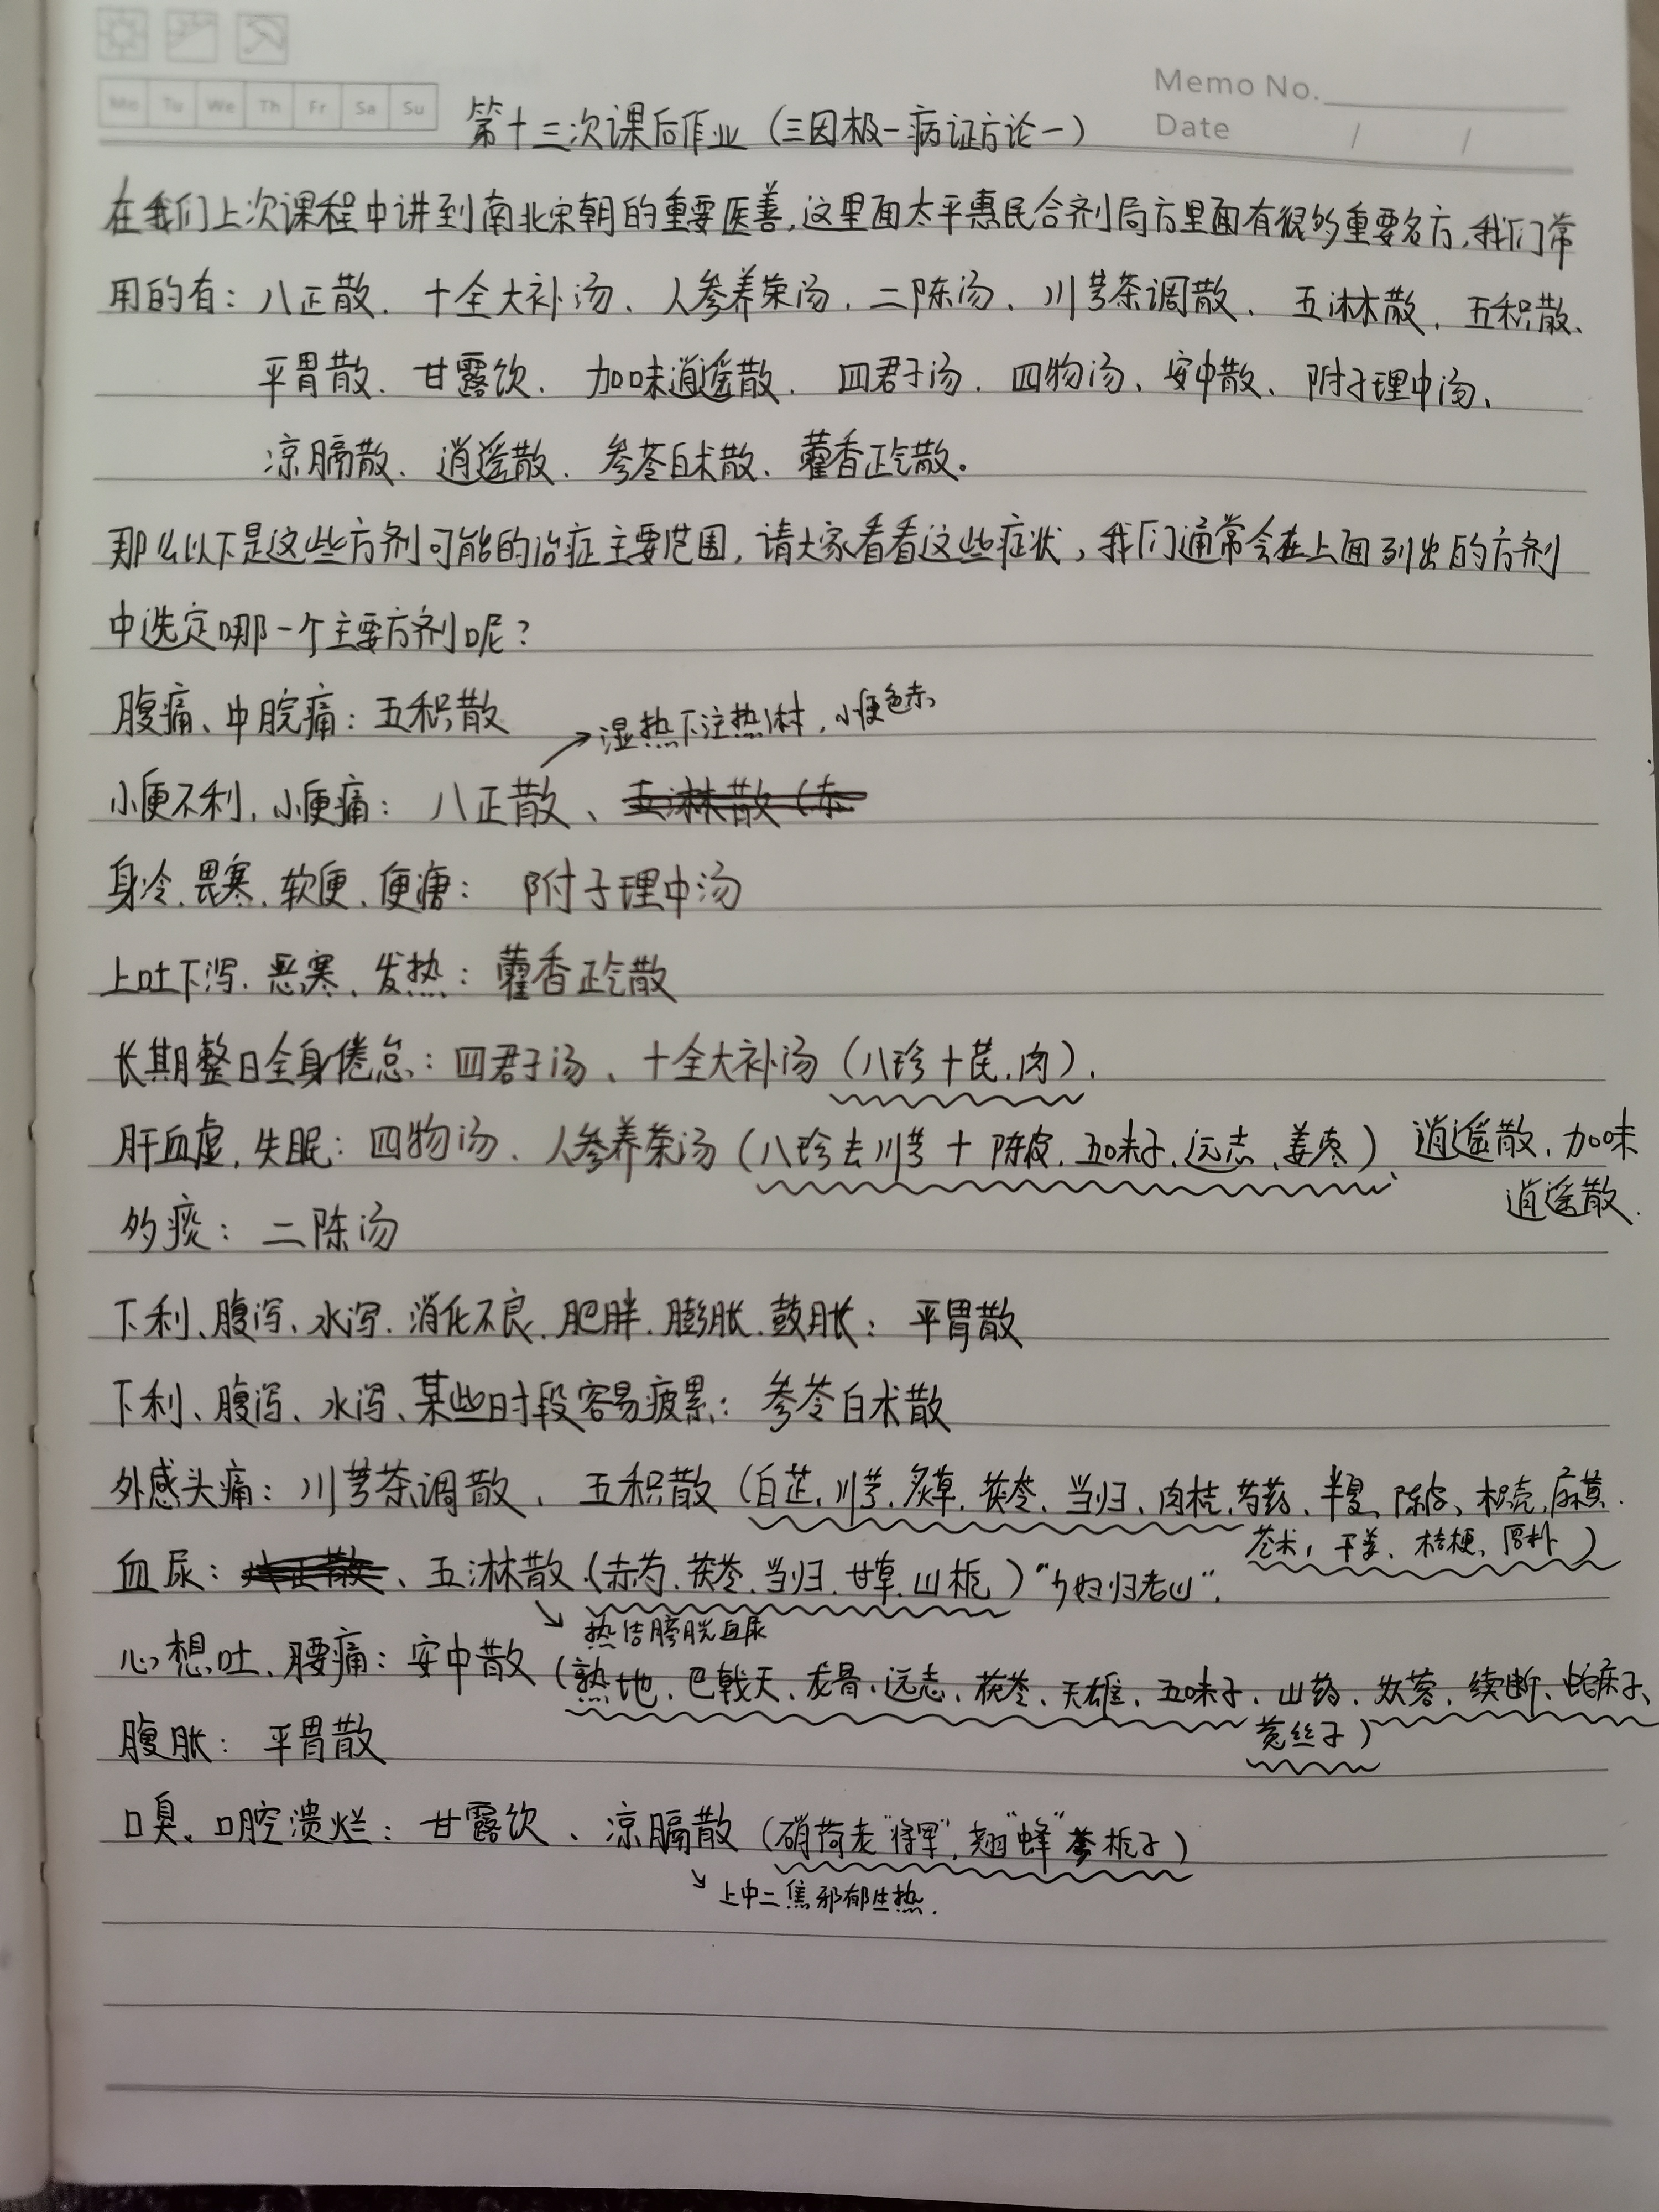 Mo Tu We Th Fr Sa Su
Memo No.
Date / /
第十三次课后作业（三因极一病证方论一）
在我们上次课程中讲到南北宋朝的重要医善，这里面太平惠民合剂局方里面有很多重要名方，我们常
用的有：八正散、十全大补汤、人参养荣汤、二陈汤、川芎茶调散、五淋散、五积散、
平胃散、甘露饮、加味逍遥散、四君子汤、四物汤、安中散、附子理中汤、
凉膈散、逍遥散、参苓白术散、藿香正气散。
那么以下是这些方剂可能的治症主要范围，请大家看看这些症状，我们通常会在上面列出的方剂
中选定哪一个主要方剂呢？
腹痛、中脘痛：五积散
湿热下注热淋，小便色赤
小便不利，小便痛：八正散、五淋散（赤
身冷、畏寒、软便、便溏：附子理中汤
上吐下泻、恶寒、发热：藿香正气散
长期整日全身倦怠：四君子汤、十全大补汤（八珍十芪、肉）.
肝血虚，失眠：四物汤、人参养荣汤（八珍去川芎＋陈皮、五味子、远志、姜枣）、逍遥散、加味
逍遥散.
多痰：二陈汤
下利、腹泻、水泻、消化不良、肥胖、膨胀、鼓胀：平胃散
下利、腹泻、水泻、某些时段容易疲累：参苓白术散
外感头痛：川芎茶调散、五积散（白芷、川芎、炙草、茯苓、当归、肉桂、芍药、半夏、陈皮、枳壳、麻黄.
苍术，干姜、桔梗、厚朴）
血尿：八正散、五淋散（赤芍、茯苓、当归、甘草、山栀）“少妇归老山”.
热结膀胱血尿
心想吐、腰痛：安中散（熟地、巴戟天、龙骨、远志、茯苓、天雄、五味子、山药、苁蓉、续断、蛇床子、
菟丝子）
腹胀：平胃散
口臭、口腔溃烂：甘露饮、凉膈散（硝荷老“将军”，翘“蜂”芩栀子）
上中二焦邪郁生热.